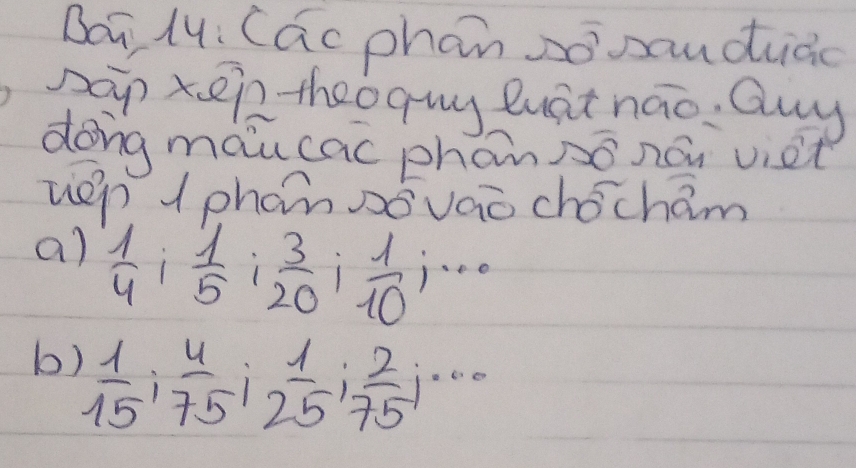 Bài 14: Các phân số sau được
sắp xếp theo quy luật nào. Quy
đồng mẫu các phân số rồi viết
tiếp 1 phân số vào chỗ chấm
a) 1/4 ; 1/5 ; 3/20 ; 1/10 ; ...
b) 1/15 ; 4/75 ; 1/25 ; 2/75 ; ...